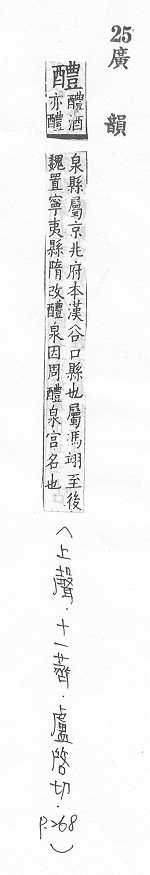 25廣韻
醴
醴酒
亦醴
泉縣屬京兆府本漢谷口縣也屬馮翊至後
魏置寧夷縣隋改醴泉因周醴泉宮名也
(上聲．十一薺．盧啓切．P.268)